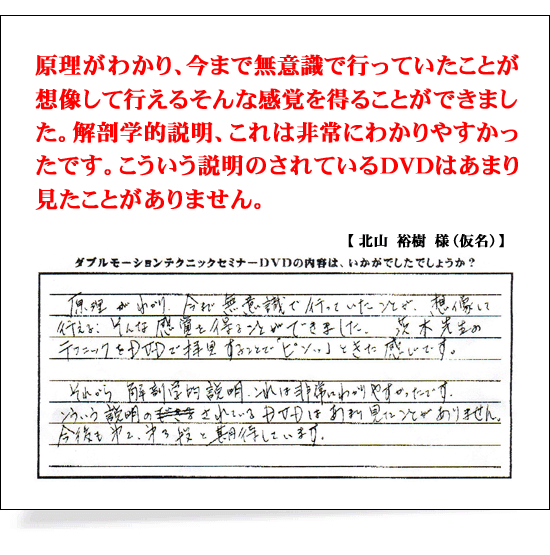 原理がわかり、今まで無意識で行っていたことが
想像して行えるそんな感覚を得ることができまし
た。解剖学的説明、これは非常にわかりやすかっ
たです。こういう説明のされているDVDはあまり
見たことがありません。
【 北山 裕樹 様（仮名）】
ダブルモーションテクニックセミナーDVDの内容は、いかがでしたでしょうか？
原理がわかり 今まで無意識で行っていたことが、想像して
行える、そんな感覚を得ることができました。茨木先生の
テクニックをDVDで拝見することで「ピンッ」ときた感じです。
それから 解剖学的説明、これは非常にわかりやすかったです。
こういう説明の されているDVDはあまり見たことがありません。
今後も第2、第3段と期待しています。